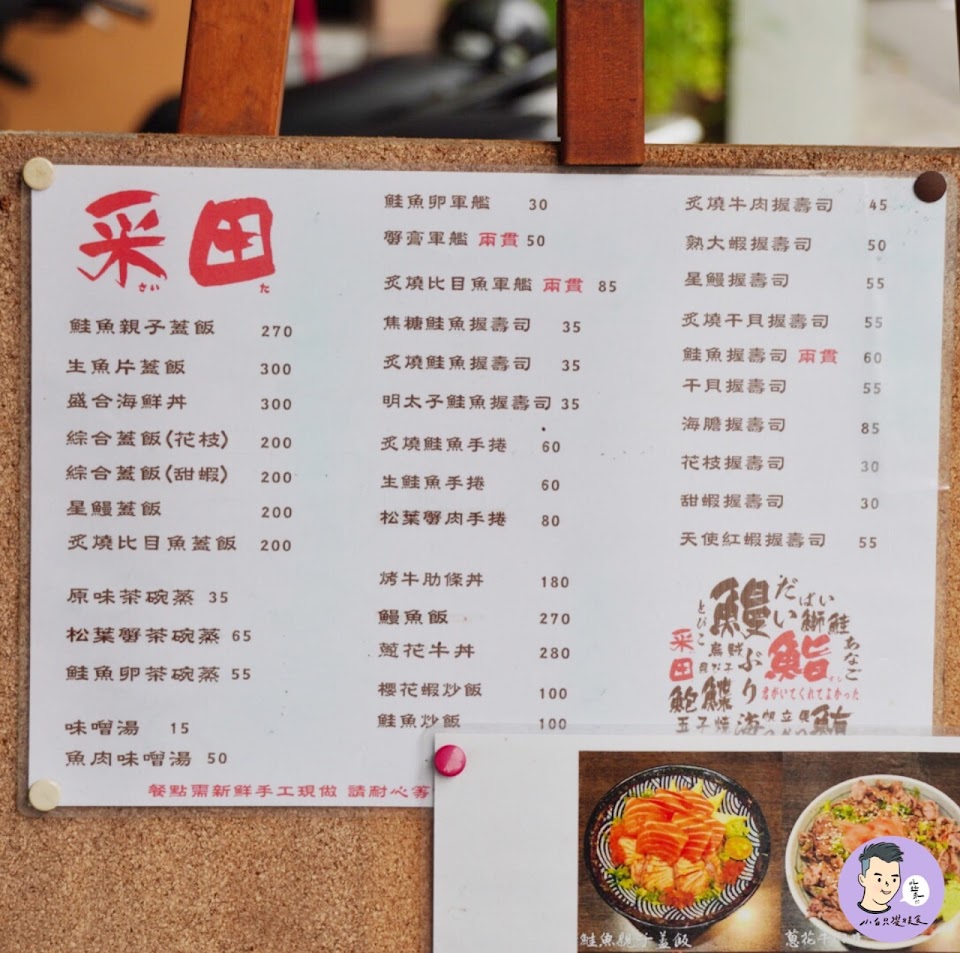 采田
さい た
鮭魚親子蓋飯 270
生魚片蓋飯 300
盛合海鮮丼 300
綜合蓋飯(花枝) 200
綜合蓋飯(甜蝦) 200
星鰻蓋飯 200
炙燒比目魚蓋飯 200
原味茶碗蒸 35
松葉蟹茶碗蒸 65
鮭魚卵茶碗蒸 55
味噌湯 15
魚肉味噌湯 50
鮭魚卵軍艦 30
蟹膏軍艦 兩貫 50
炙燒比目魚軍艦 兩貫 85
焦糖鮭魚握壽司 35
炙燒鮭魚握壽司 35
明太子鮭魚握壽司 35
炙燒鮭魚手捲 60
生鮭魚手捲 60
松葉蟹肉手捲 80
烤牛肋條丼 180
鰻魚飯 270
蔥花牛丼 280
櫻花蝦炒飯 100
鮭魚炒飯 100
炙燒牛肉握壽司 45
熟大蝦握壽司 50
星鰻握壽司 55
炙燒干貝握壽司 55
鮭魚握壽司 兩貫 60
干貝握壽司 55
海膽握壽司 85
花枝握壽司 30
甜蝦握壽司 30
天使紅蝦握壽司 55
とびこ
鰻
だい
ばい
鰤鮭
あなご
采田
烏賊
ぶり
鮨
すし
君がいてくれてよかった
鮑
玉子焼
海
餐點需新鮮手工現做 請耐心等
鮭魚親子蓋飯
蔥花牛